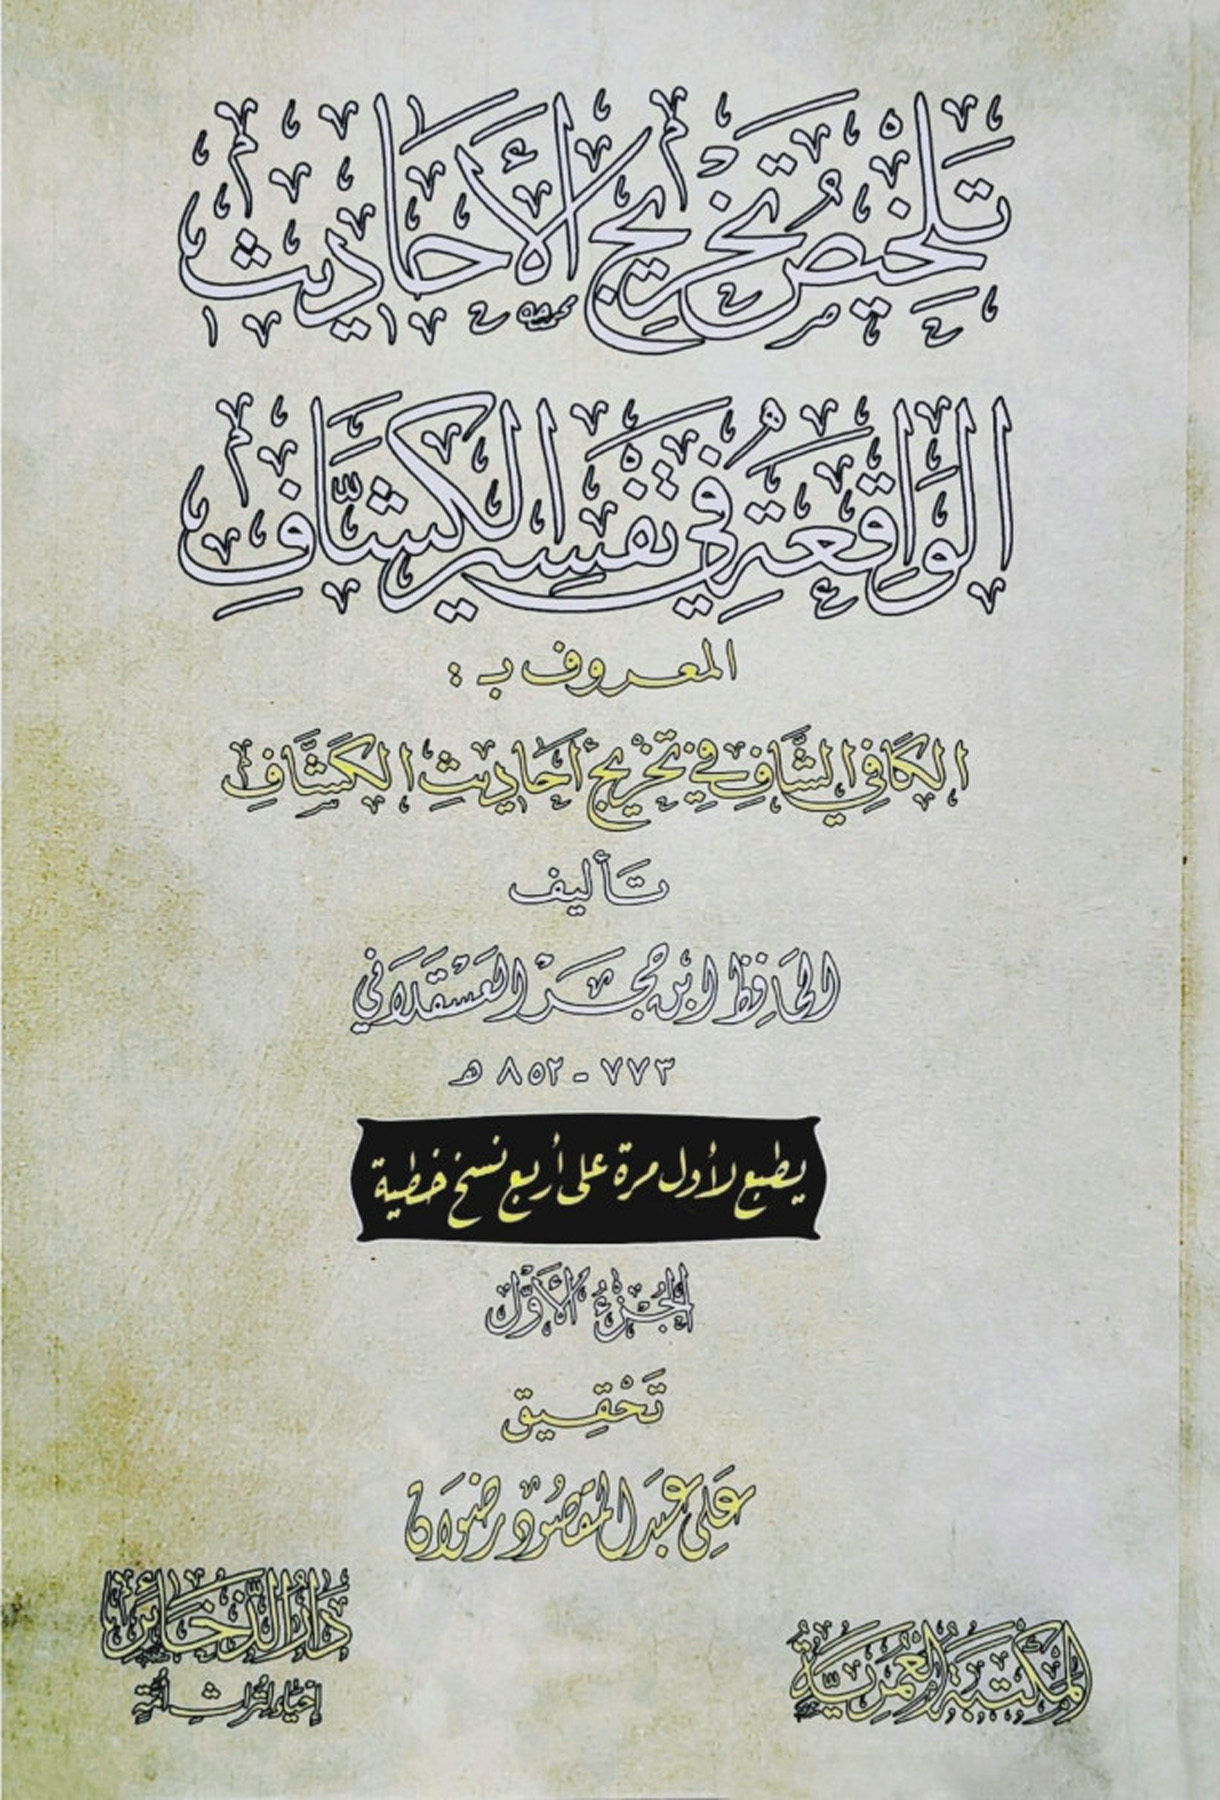 تلخيص تخريج الأحاديث
الواقعة في تفسير الكشاف
المعروف بـ:
الكافي الشاف في تخريج أحاديث الكشاف
تأليف
الحافظ ابن حجر العسقلاني
٧٧٣ - ٨٥٢ هـ
يطبع لأول مرة على أربع نسخ خطية
الجزء الأول
تحقيق
علي عبد المقصود رضوان
المكتبة العمرية
دار الذخائر
إحياء لتراث أمة